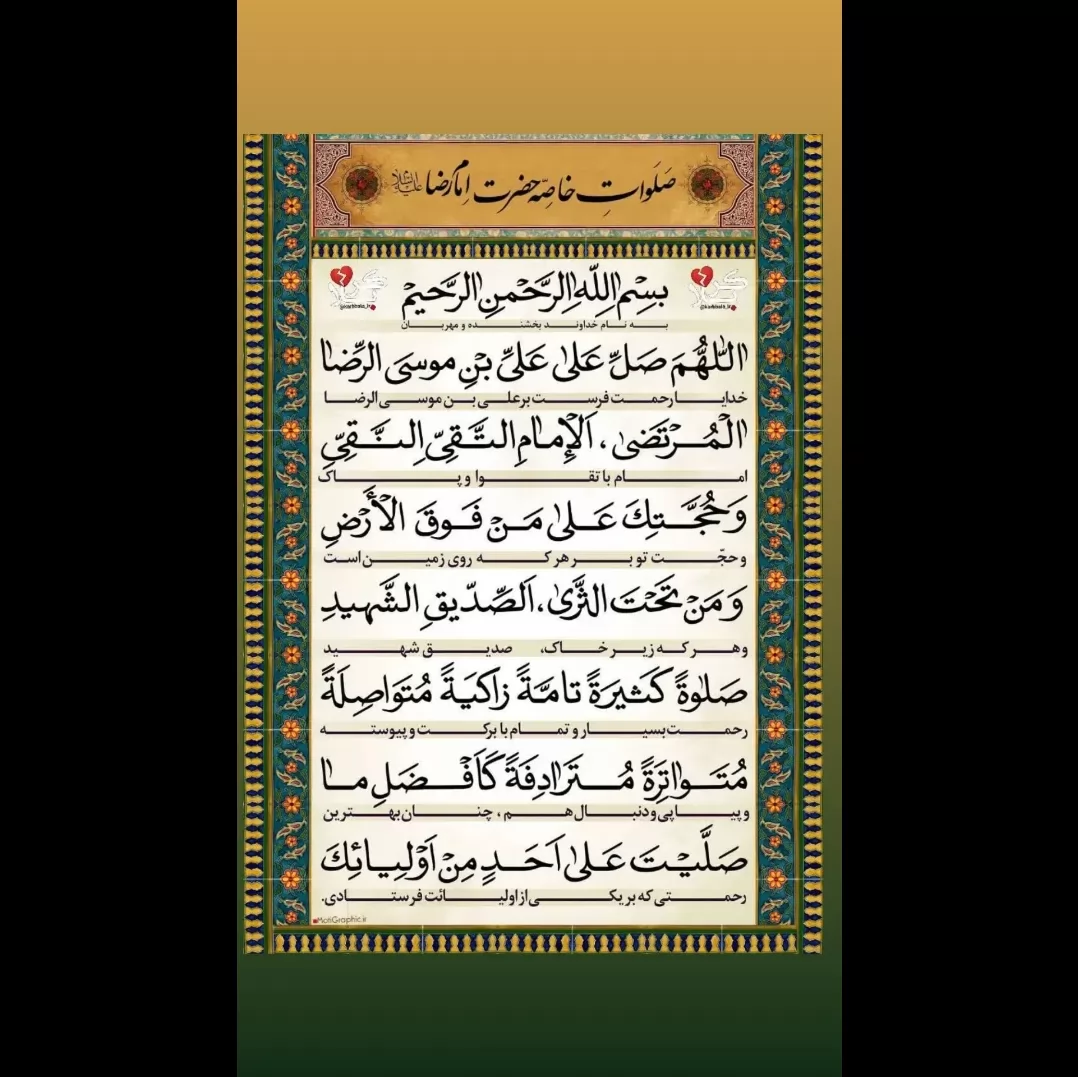 صَلَواتِ خاصّه حضرت اِمام رضا علیه‌السلام
بِسْمِ اللّٰهِ الرَّحْمٰنِ الرَّحیمْ
به نام خداوند بخشنده و مهربان
اَللّٰهُمَّ صَلِّ عَلیٰ عَلیِّ بْنِ موسَی الرِّضَا
خدایا رحمت فرست بر علی بن موسی الرضا
الْمُرْتَضیٰ ، اَلْاِمامِ التَّقیِّ النَّقیِّ
امام با تقوا و پاک
وَ حُجَّتِكَ عَلیٰ مَنْ فَوقَ الْأَرْضِ
و حجّت تو بر هر که روی زمین است
وَ مَنْ تَحْتَ الثَّریٰ، اَلصِّدّیقِ الشَّهیدِ
و هر که زیر خاک، صدیق شهید
صَلٰوةً كَثیرَةً تامَّةً زاكیَةً مُتَواصِلَةً
رحمت بسیار و تمام با برکت و پیوسته
مُتَواتِرَةً مُتَرادِفَةً كَاَفْضَلِ ما
و پیاپی و دنبال هم ، چنان بهترین
صَلَّیْتَ عَلیٰ اَحَدٍ مِنْ اَوْلیائِكَ
رحمتی که بر یکی از اولیائت فرستادی.
MotiGraphic.ir